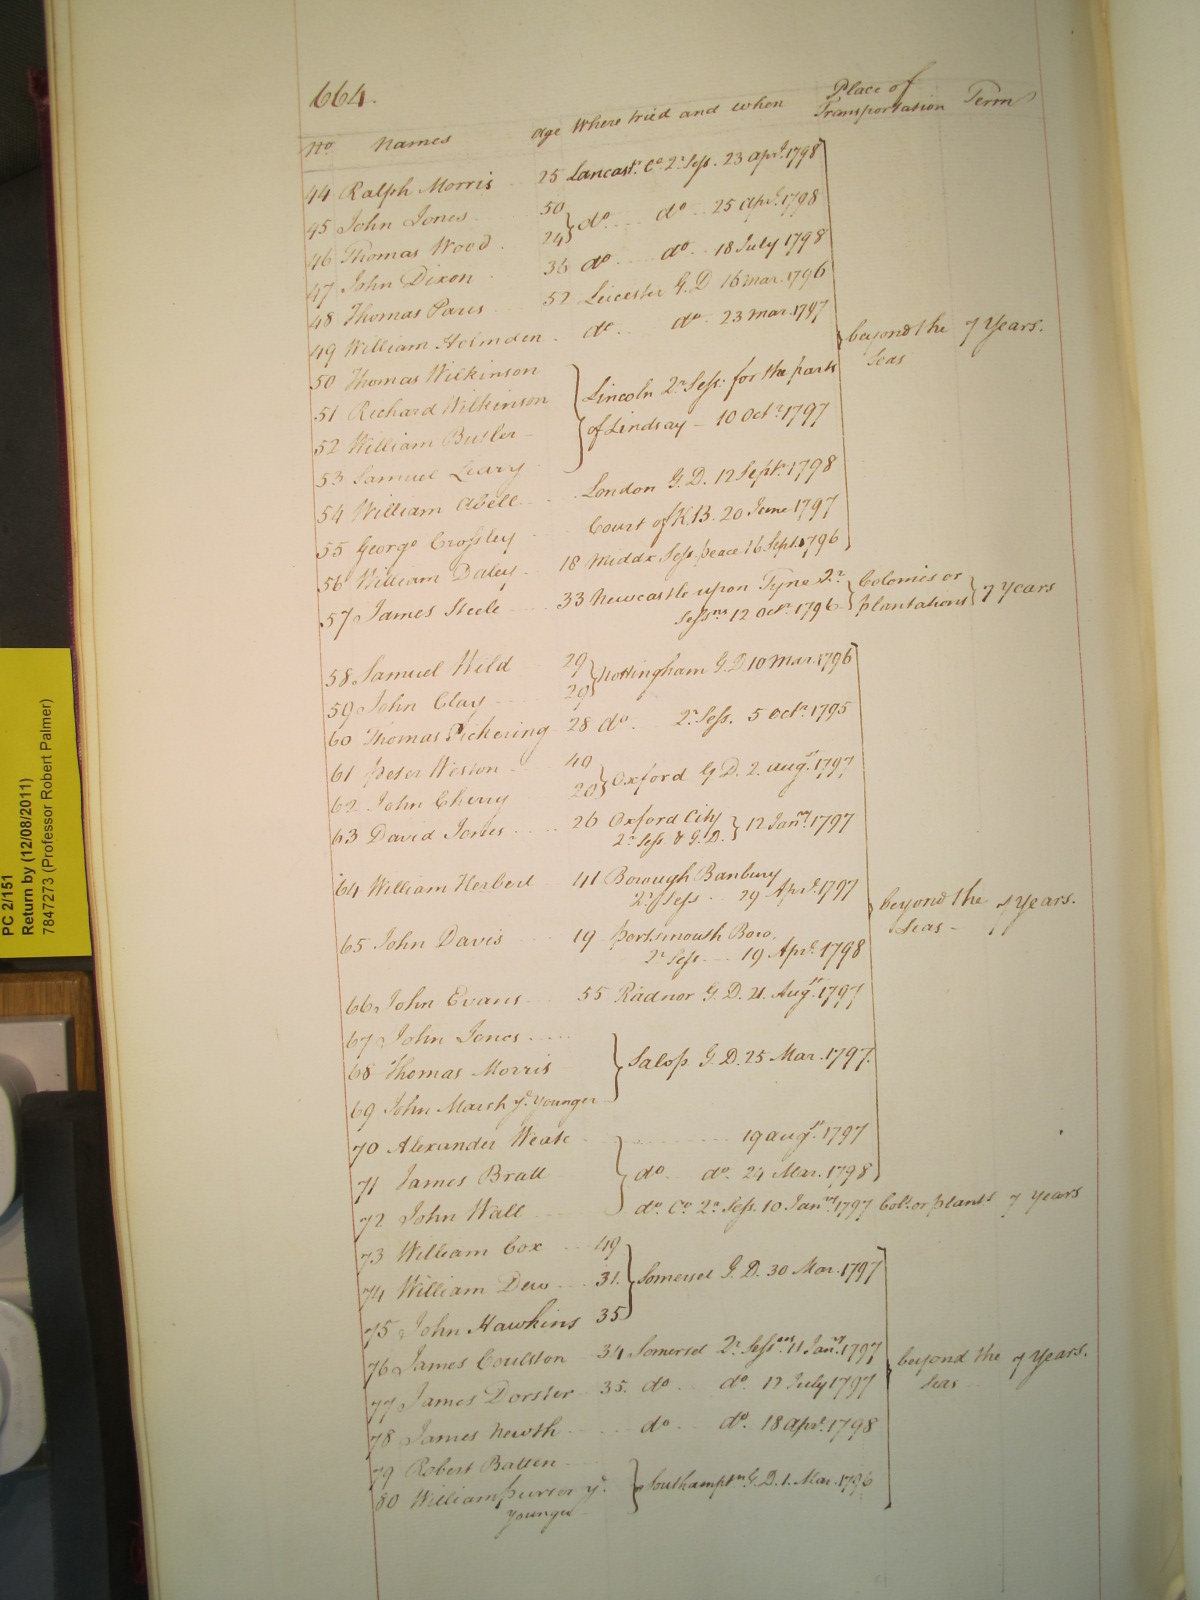 664.
No Names Age Where tried and when Place of Transportation Term
44 Ralph Morris 25 Lancastr. Co. 2r Sess. 23 Aprl. 1798
45 John Jones 50
46 Thomas Wood 24 } do do 25 Aprl. 1798
47 John Dixon 36 do do 18 July 1798
48 Thomas Paris 52 Leicester G.D 16 Mar. 1796
49 William Holmden do do 23 Mar. 1797
50 Thomas Wilkinson
51 Richard Wilkinson Lincoln 2r Sess: for the parts
52 William Butler of Lindsay - 10 Octr. 1797
53 Samuel
54 William Abell London G.D. 12 Septr. 1798
55 George Crossley Court of K.B. 20 June 1797
56 William Daley 18 Middx Sess. peace 16 Sept. 1796
beyond the Seas 7 Years.
57 James Steele 33 Newcastle upon Tyne 2r
Sessns 12 Octr. 1796 Colonies or plantations 7 years
58 Samuel Wild 29
59 John Clay 29 } Nottingham G.D 10 Mar. 1796
60 Thomas Pickering 28 do 2r Sess. 5 Octr. 1795
61 Peter Weston 49
62 John Cherry 20 } Oxford G.D. 2. Augst. 1797
63 David Jones 26 Oxford City
2r Sess. & G.D. } 12 Janry. 1797
64 William Herbert 41 Borough Banbury
2r Sess 29 Aprl. 1797
65 John Davis 19 Portsmouth Boro.
2r Sess 19 Aprl. 1798
beyond the Seas - 7 Years.
66 John Evans 55 Radnor G.D. 21 Augst. 1797
67 John Jones
68 Thomas Morris Salop G.D. 25 Mar. 1797.
69 John March ye. Younger
70 Alexander 19 Augst. 1797
71 James Bratt do do. 24 Mar. 1798
72 John Wall do. Co. 2r Sess. 10 Janry. 1797 Cols. or plants 7 Years
73 William Cox 49
74 William Dew 31. Somerset G.D. 30 Mar. 1797
75 John Hawkins 35
76 James Coulston 34 Somerset 2r Sessns 11 Janry. 1797
77 James Dorster 35. do do. 12 July 1797
beyond the Seas 7 Years.
78 James Newth do do. 18 Aprl. 1798
79 Robert Batten
80 William ye. Southamptn G.D. 1. Mar. 1796
younger
PC 2/151
Return by (12/08/2011)
7847273 (Professor Robert Palmer)